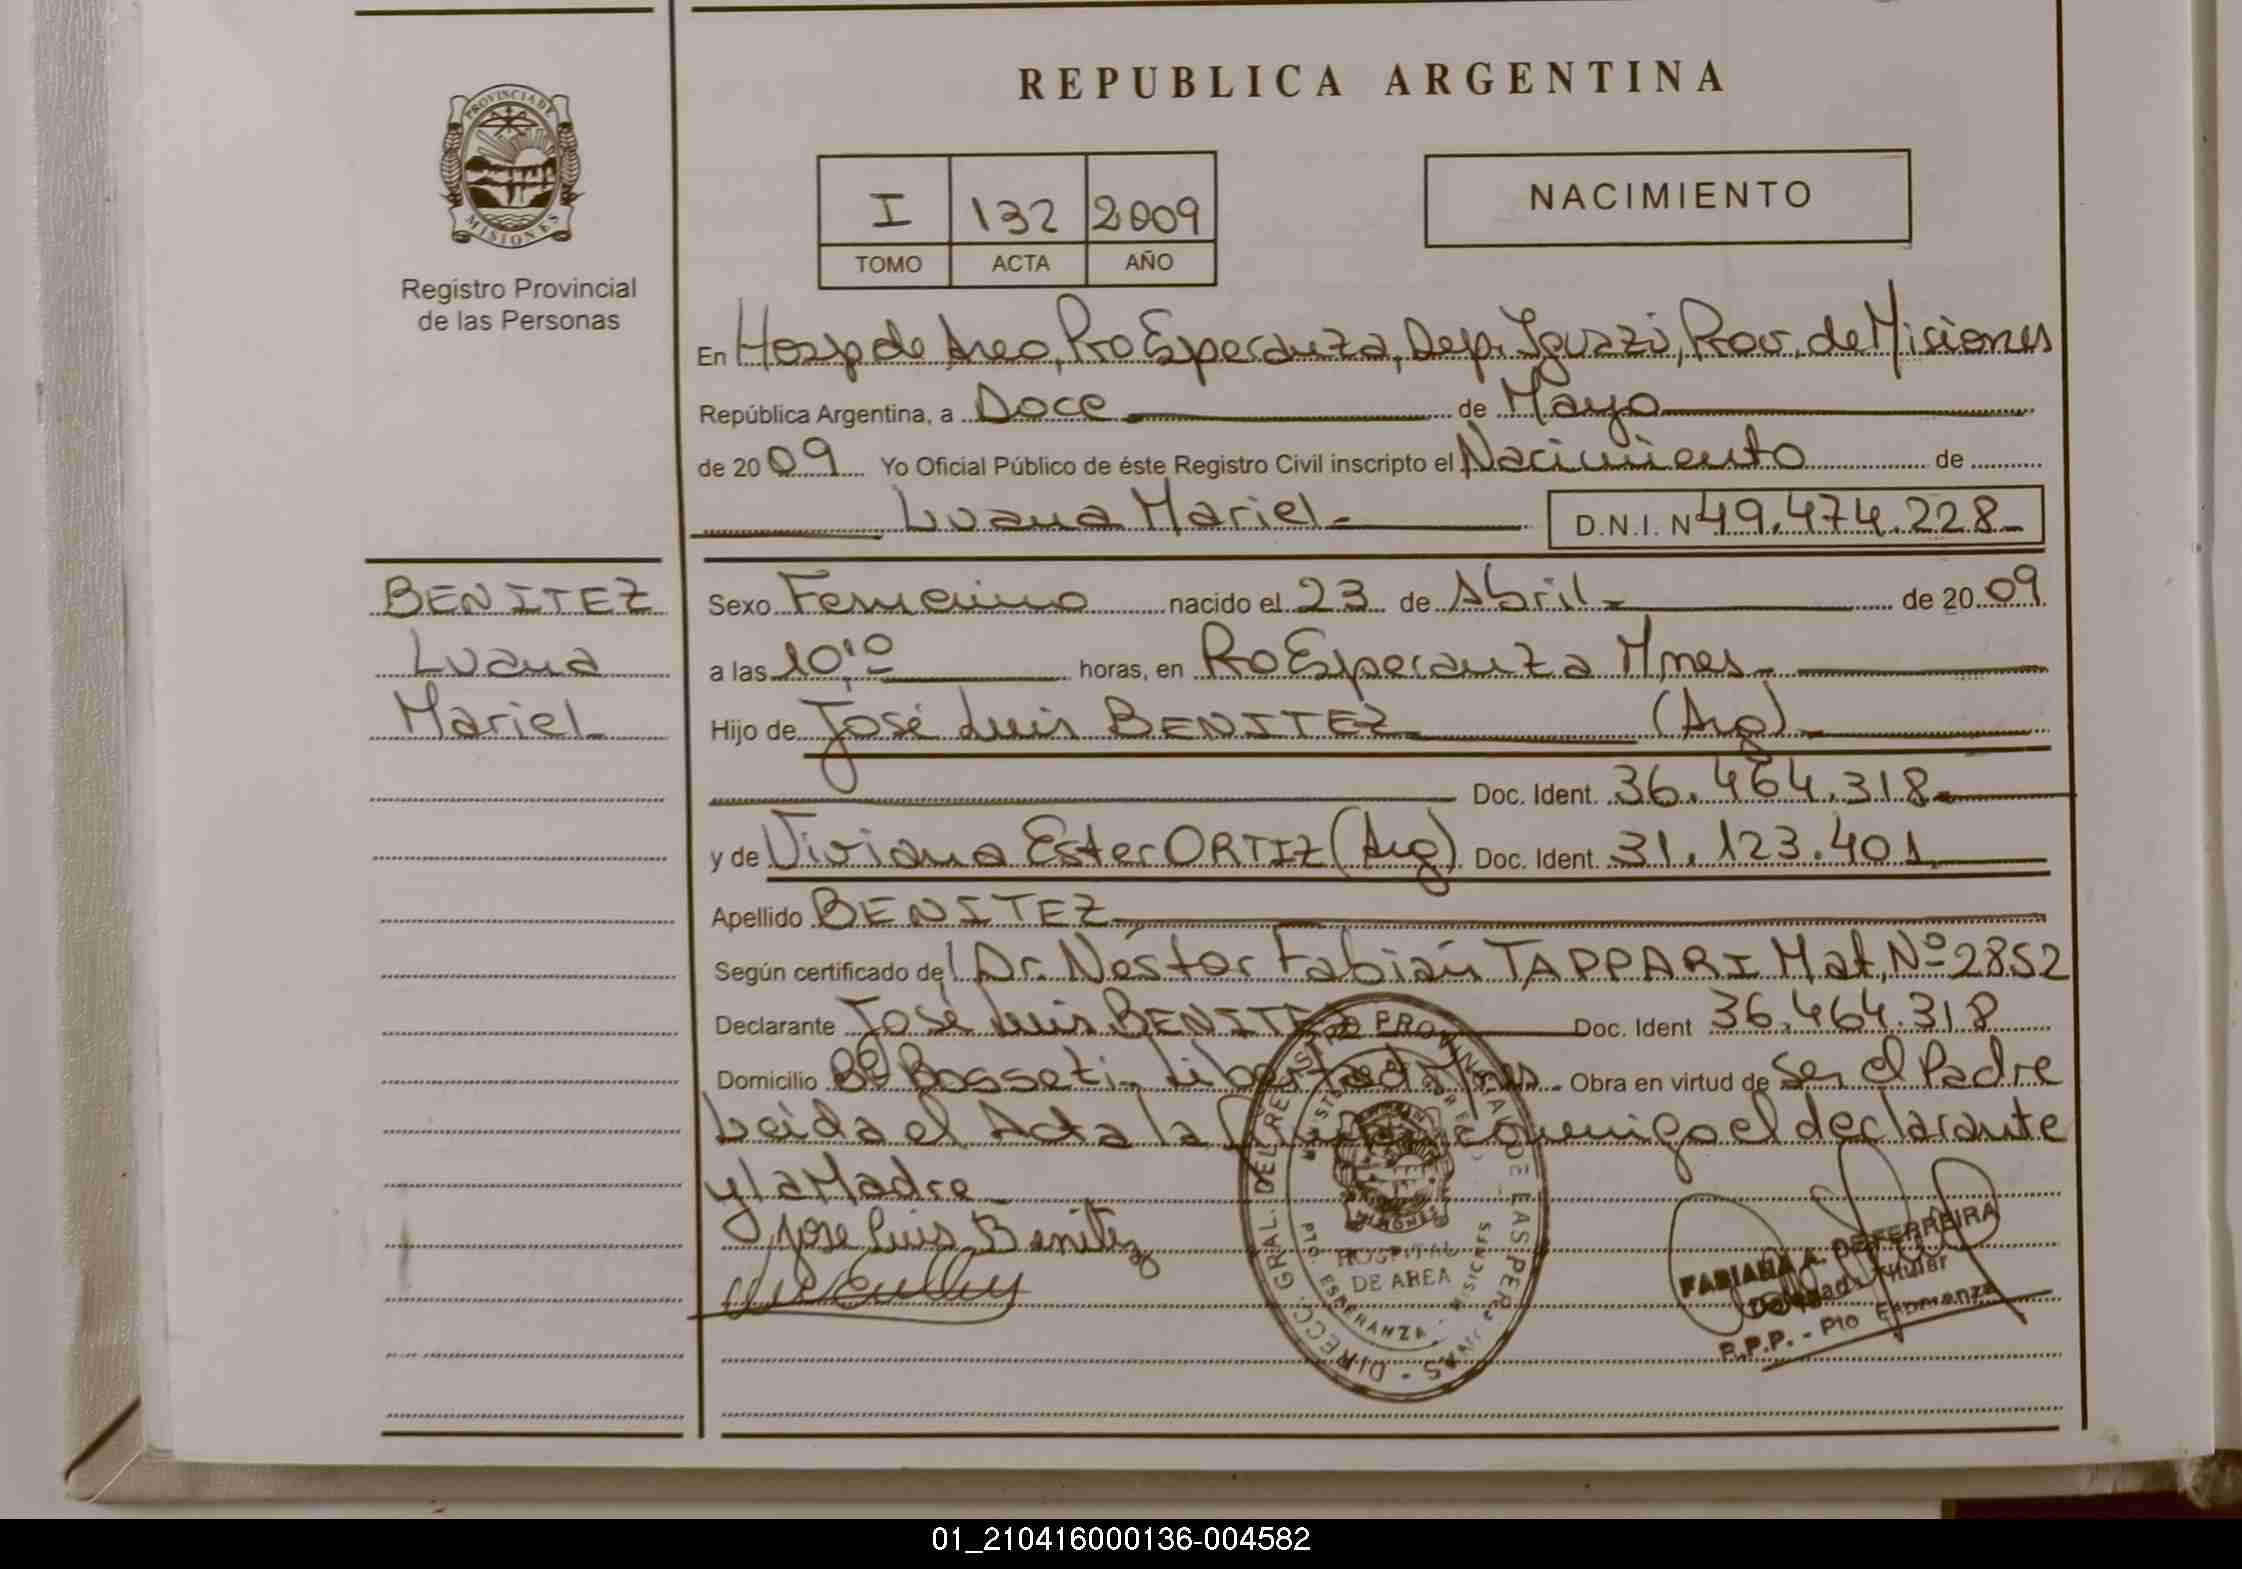 REPUBLICA ARGENTINA
PROVINCIA DE
MISIONES
Registro Provincial
de las Personas
I 132 2009
TOMO ACTA AÑO
NACIMIENTO
En Hosp de Area, Pto Esperanza, Dep. Iguazú, Prov. de Misiones
República Argentina, a Doce de Mayo
de 2009 Yo Oficial Público de éste Registro Civil inscripto el Nacimiento de
Luana Mariel D.N.I. N 49.474.228
BENITEZ
Luana
Mariel
Sexo Femenino nacido el 23 de Abril de 2009
a las 10,10 horas, en Pto Esperanza Mnes
Hijo de José Luis BENITEZ (Arg)
Doc. Ident. 36.464.318
y de Viviana Ester ORTIZ (Arg) Doc. Ident. 31.123.401
Apellido BENITEZ
Según certificado del Dr. Néstor Fabián TAPPARI Mat. Nº 2852
Declarante José Luis BENITEZ Doc. Ident 36.464.318
Domicilio Bº Bosseti Libertad Mnes Obra en virtud de Ser el Padre
Leida el Acta la conmigo el declarante
y la Madre
Jose Luis Benitez
DIRECC. GRAL. DEL REGISTRO PROVINCIAL DE LAS PERSONAS
MISIONES
HOSPITAL
DE AREA
PTO. ESPERANZA - MISIONES
FABIANA A. DE FERREIRA
Delegada Titular
R.P.P. - Pto Esperanza
01_210416000136-004582